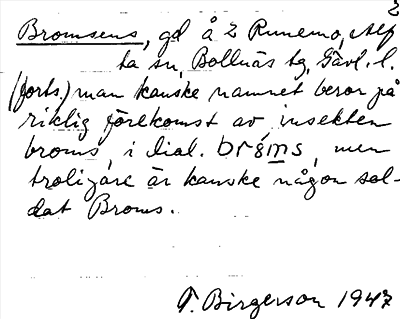 2
Bromsens, gd å 2 Runemo, Alf
ta sn, Bollnäs tg, Gävl. l.
(forts.) man kanske namnet beror på
riklig förekomst av insekten
broms, i dial. brɵms, men
troligare är kanske någon sol-
dat Broms.
T. Birgerson 1947